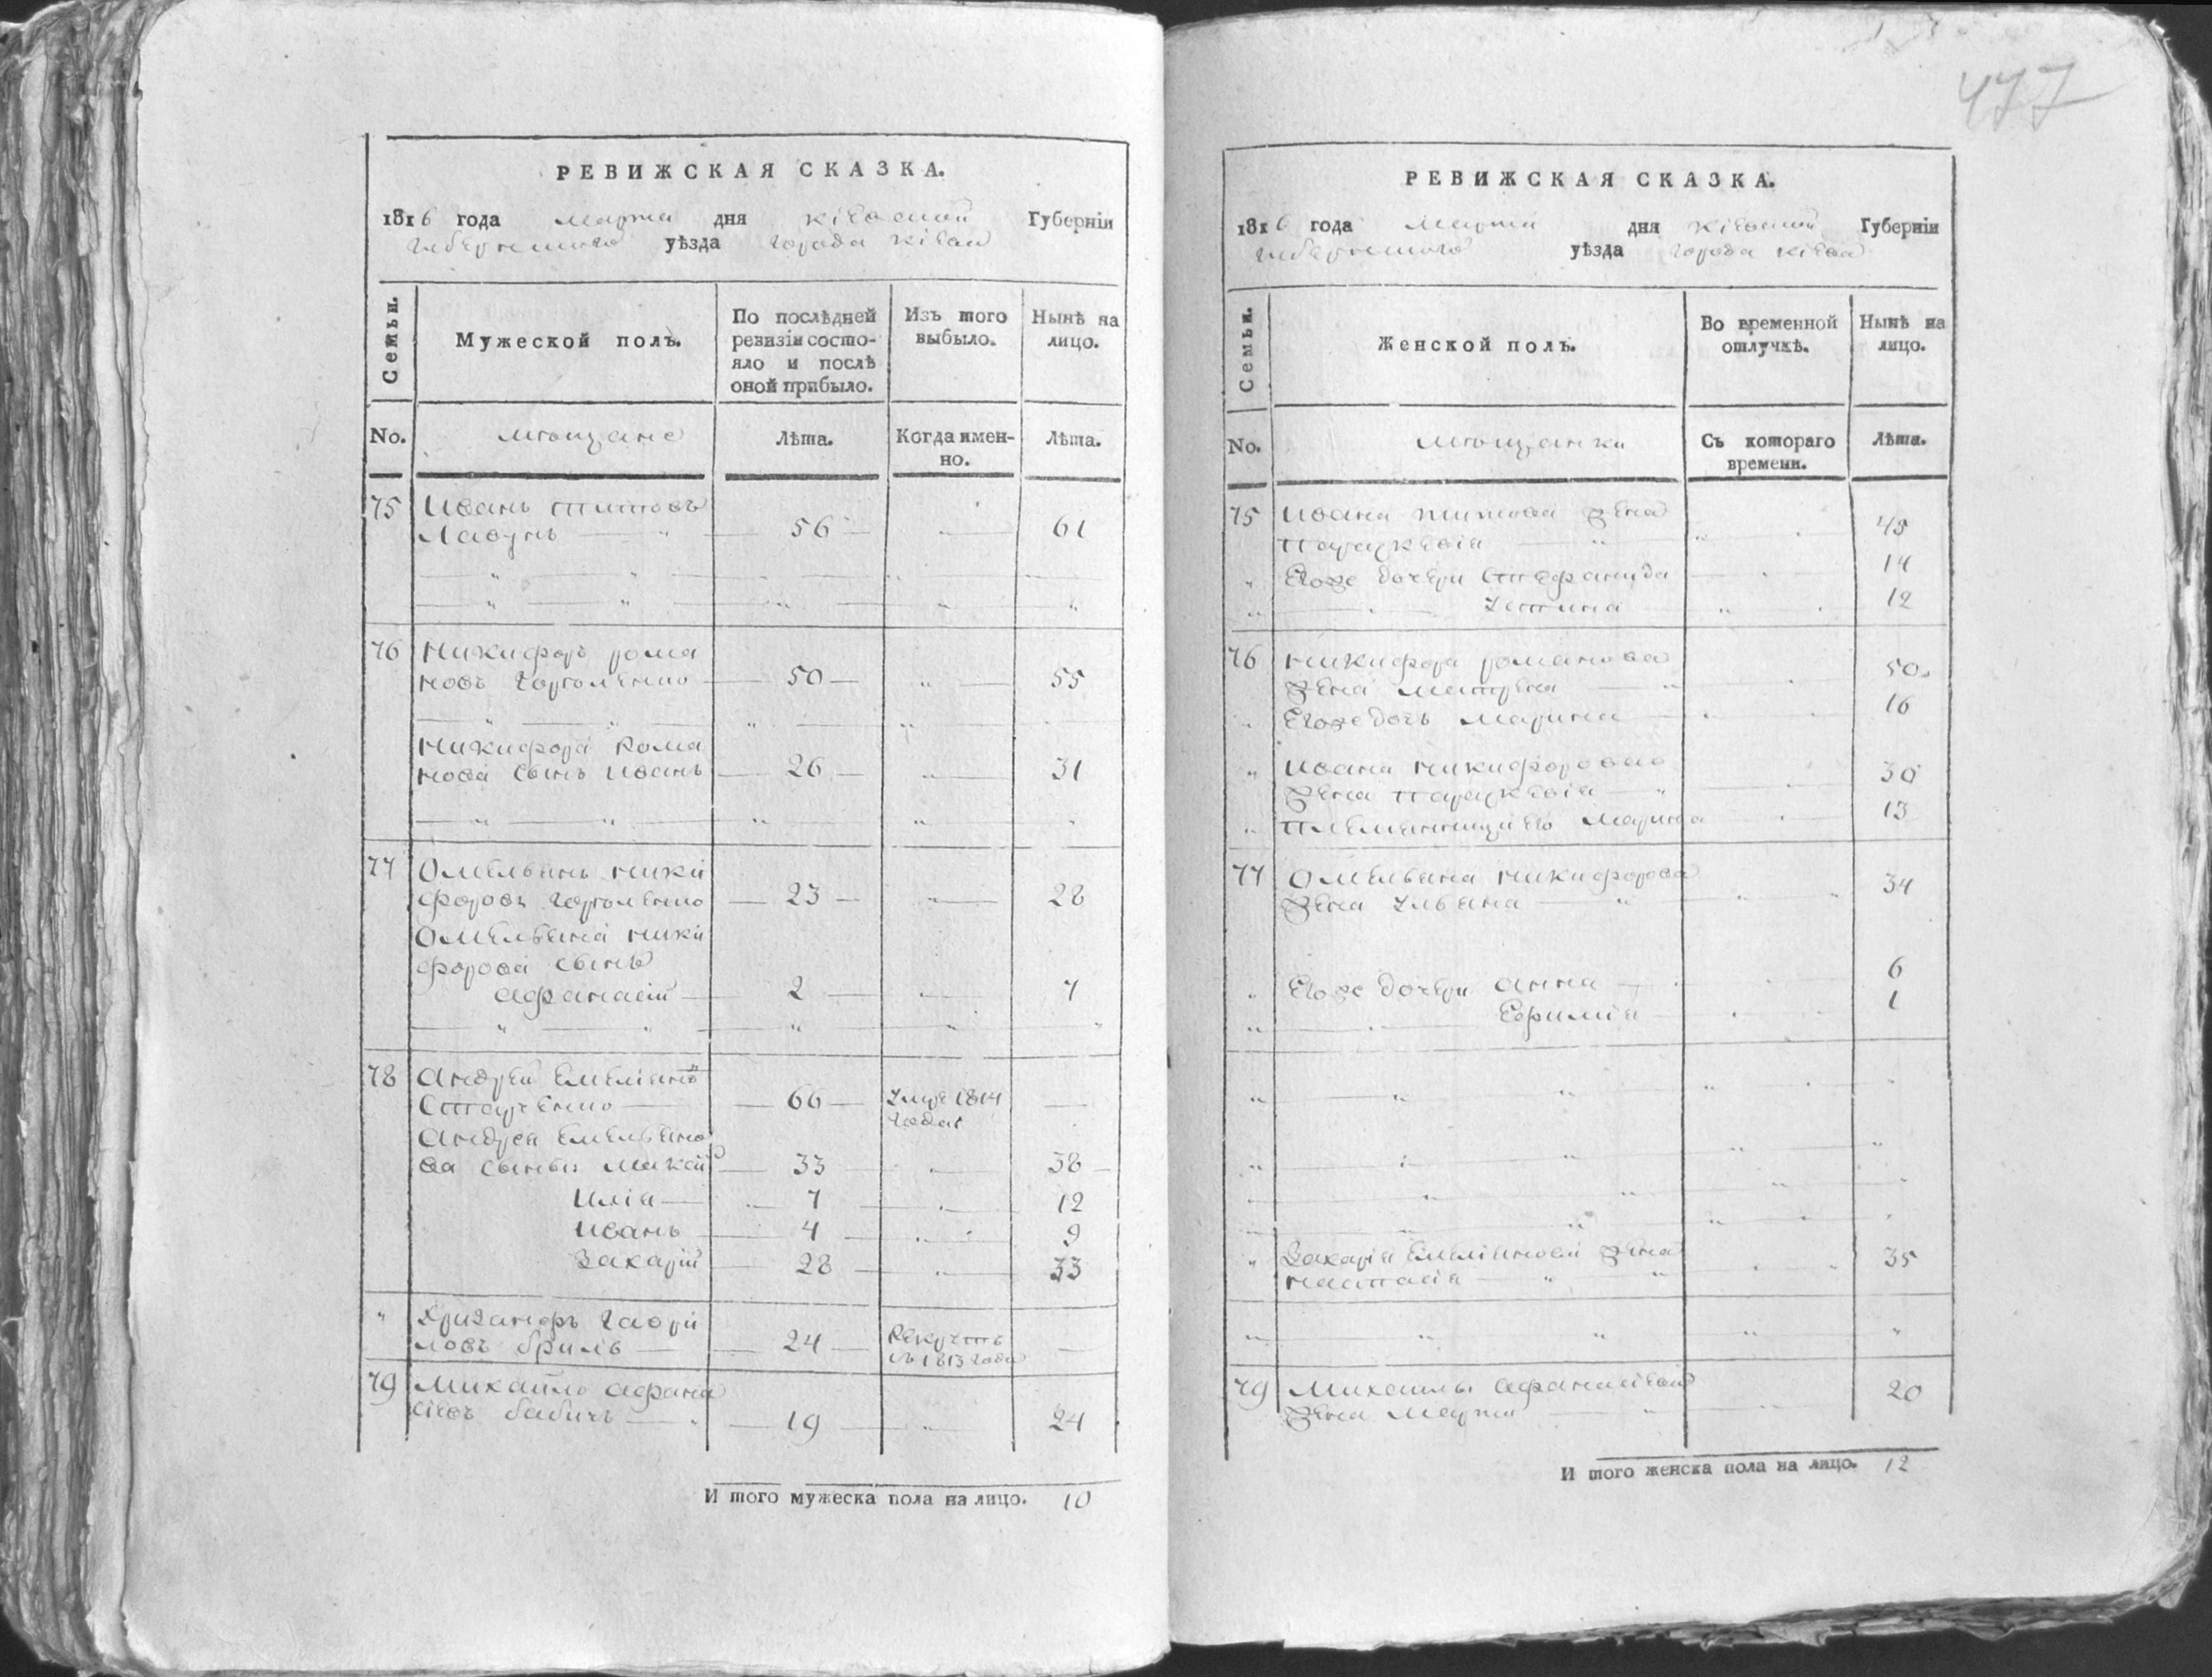 477
РЕВИЖСКАЯ СКАЗКА.
1816 года марта дня Кіевской Губерніи
Губернского уѣзда города Кіева
Семьи. Мужеской полъ. По послѣдней ревизіи состо-яло и послѣ оной прибыло. Изъ того выбыло. Нынѣ на лицо.
No. мѣщане Лѣта. Когда имен-но. Лѣта.
75 Иванъ Титовъ
Лавунъ 56 61
76 Никифоръ Рома
новъ 50 55
Никифора Рома
нова сынъ Иванъ 26 31
77 Омельянъ Ники
форовъ 23 28
Омельяна Ники
форова сынъ
Афанасій 2 7
78 Андрей Емеліянъ
Старченко 66 Умре 1814 года
Андрея Емельяно
ва сыны 33 38
Илія 7 12
Иванъ 4 9
Захарій 28 33
Хрисанфъ Гаври
ловъ Бриль 24 Рекрутъ 1813 года
79 Михайло Афана
сіевъ Бабичъ 19 24
И того мужеска пола на лицо. 10
РЕВИЖСКАЯ СКАЗКА.
1816 года марта дня Кіевской Губерніи
Губернского уѣзда города Кіева
Семьи. Женской полъ. Во временной отлучкѣ. Нынѣ на лицо.
No. мѣщанки Съ котораго времени. Лѣта.
75 Ивана Титова жена
Параскевія 45
Егоже дочери Стефанида 14
Устина 12
76 Никифора Романова
жена Матрена 50
Егоже дочь Марина 16
Ивана Никифорова
жена Параскевія 30
Племенница его Марина 13
77 Омельяна Никифорова
жена Ульяна 34
Егоже дочери Анна 6
Ефимія 1
Захарія Емеліянова жена
Настасія 35
79 Михаилы Афанасіева
жена Марта 20
И того женска пола на лицо. 12